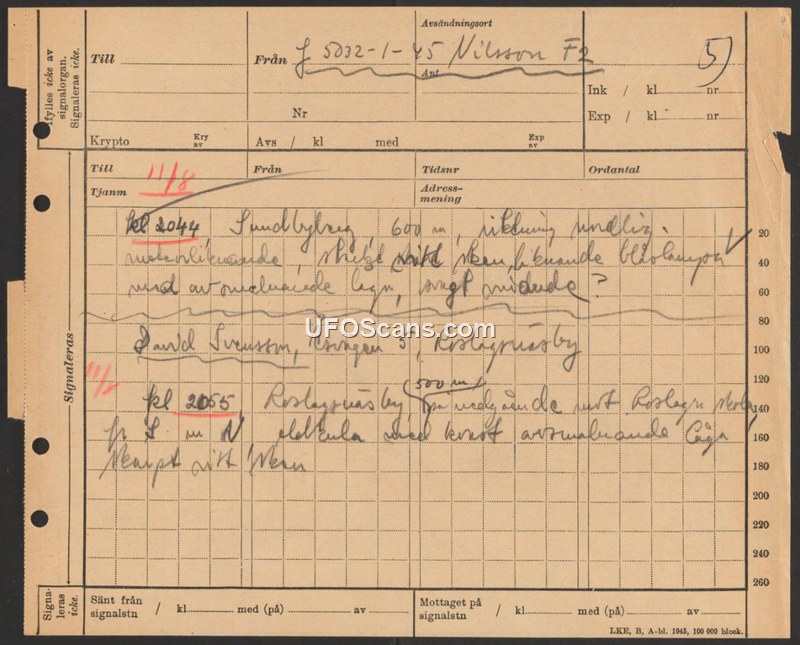 Ifylles icke av signalorgan. Signaleras icke.
Avsändningsort
Till
Från 5032-1-45 Nilsson F2
Ant
5
Ink / kl nr
Nr
Exp / kl nr
Krypto Kry av Avs / kl med Exp av
Till 11/8 Från Tidsnr Ordantal
Tjanm Adress-mening
kl 2044, Sundbyberg, 600 m, riktning nordlig. 20
meteorliknande, sken, liknande blåslampa 40
med avsmalnande låga, svagt ? 60
80
UFOScans.com
David Svensson, 5, Roslagsnäsby 100
Signaleras
11/8
120
500 m
kl 2055 Roslagsnäsby, nedgående mot Roslags 140
fr S m N eldkula med konst avsmalnande låga 160
skarpt vitt sken 180
200
220
240
260
Signaleras icke.
Sänt från signalstn / kl med (på) av
Mottaget på signalstn / kl med (på) av
LKE, B, A-bl. 1943, 100 000 block.